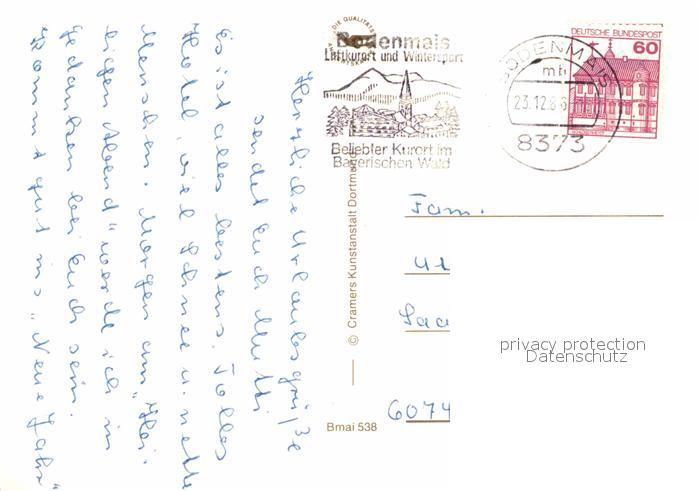 DIE QUALITÄTS
Bodenmais
Luftkurort und Wintersport
Beliebter Kurort im
Bayerischen Wald
BODENMAIS
mb
23.12.8
8373
DEUTSCHE BUNDESPOST
60
Herzliche Urlaubsgrüße
sendet Euch Mutti
Es ist alles bestens. Tolles
Hotel, viel Schnee u. nette
Menschen. Morgen am "Hei-
ligen Abend" werde ich in
Gedanken bei Euch sein.
Kommt gut ins "Neue Jahr"
© Cramers Kunstanstalt Dortmund
Bmai 538
Fam.
Ul
6074
privacy protection
Datenschutz